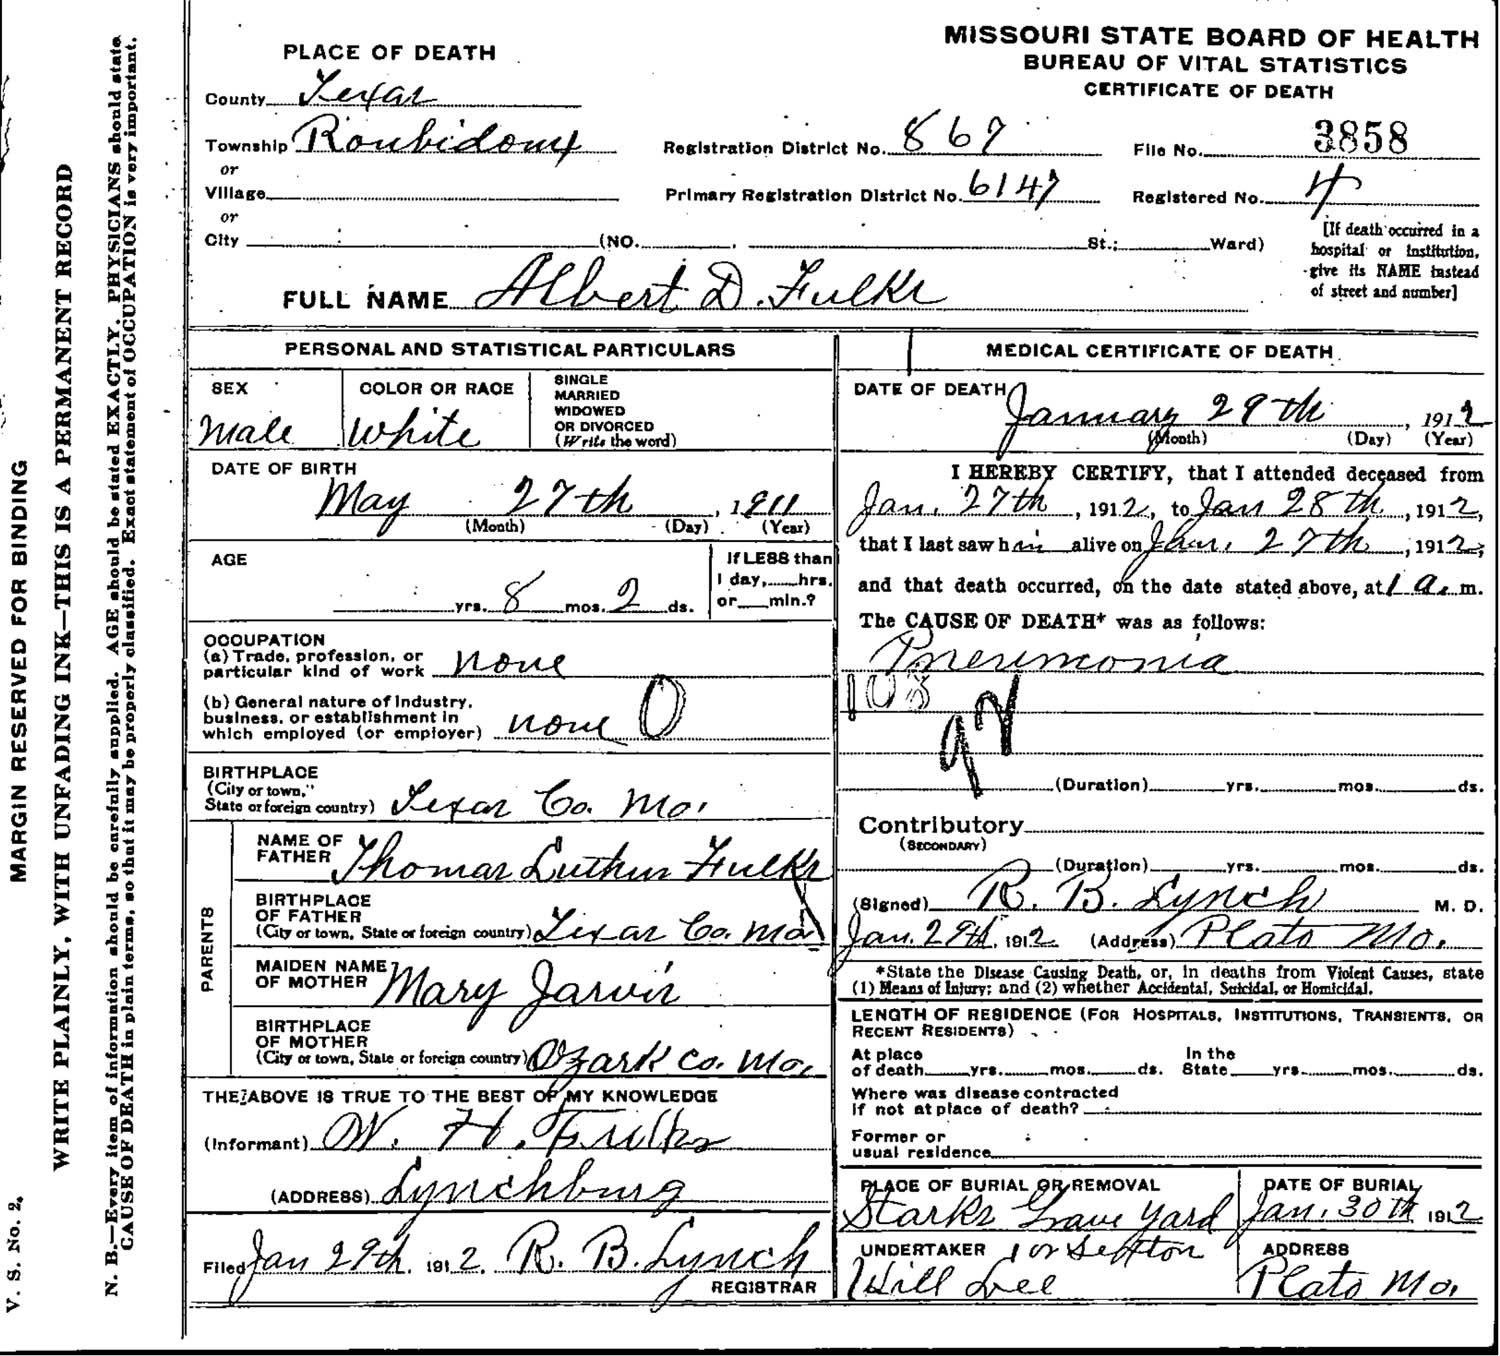 MISSOURI STATE BOARD OF HEALTH
BUREAU OF VITAL STATISTICS
CERTIFICATE OF DEATH
PLACE OF DEATH
County Texas
Township Roubidoux
or
Village
or
City (NO. St.; Ward)
Registration District No. 867
File No. 3858
Primary Registration District No. 6147
Registered No. 4
[If death occurred in a
hospital or institution,
give its NAME instead
of street and number]
FULL NAME Albert D. Fulks
PERSONAL AND STATISTICAL PARTICULARS
SEX
Male
COLOR OR RACE
White
SINGLE
MARRIED
WIDOWED
OR DIVORCED
(Write the word)
DATE OF BIRTH
May 27th, 1911
(Month) (Day) (Year)
AGE
yrs. 8 mos. 2 ds.
If LESS than
1 day, hrs.
or min.?
OCCUPATION
(a) Trade, profession, or
particular kind of work none
(b) General nature of industry,
business, or establishment in
which employed (or employer) none 0
BIRTHPLACE
(City or town,
State or foreign country) Texas Co. Mo.
PARENTS
NAME OF
FATHER Thomas Luther Fulks
BIRTHPLACE
OF FATHER
(City or town, State or foreign country) Texas Co. Mo
MAIDEN NAME
OF MOTHER Mary Jarvis
BIRTHPLACE
OF MOTHER
(City or town, State or foreign country) Ozark Co. Mo.
THE ABOVE IS TRUE TO THE BEST OF MY KNOWLEDGE
(Informant) W. H. Fulks
(ADDRESS) Lynchburg
Filed Jan 29th, 1912, R. B. Lynch
REGISTRAR
MEDICAL CERTIFICATE OF DEATH
DATE OF DEATH
January 29th, 1912
(Month) (Day) (Year)
I HEREBY CERTIFY, that I attended deceased from
Jan. 27th, 1912, to Jan 28th, 1912,
that I last saw him alive on Jan. 27th, 1912,
and that death occurred, on the date stated above, at 1 a. m.
The CAUSE OF DEATH* was as follows:
Pneumonia
108
92
(Duration) yrs. mos. ds.
Contributory
(SECONDARY)
(Duration) yrs. mos. ds.
(Signed) R. B. Lynch M. D.
Jan. 29th, 1912 (Address) Plato Mo.
*State the Disease Causing Death, or, in deaths from Violent Causes, state
(1) Means of Injury; and (2) whether Accidental, Suicidal, or Homicidal.
LENGTH OF RESIDENCE (FOR HOSPITALS, INSTITUTIONS, TRANSIENTS, OR
RECENT RESIDENTS)
At place
of death yrs. mos. ds.
In the
State yrs. mos. ds.
Where was disease contracted
if not at place of death?
Former or
usual residence
PLACE OF BURIAL OR REMOVAL
Starks Grave Yard
or Seffton
DATE OF BURIAL
Jan. 30th 1912
UNDERTAKER
Will Lee
ADDRESS
Plato Mo.
MARGIN RESERVED FOR BINDING
WRITE PLAINLY, WITH UNFADING INK—THIS IS A PERMANENT RECORD
N. B.—Every item of information should be carefully supplied. AGE should be stated EXACTLY. PHYSICIANS should state
CAUSE OF DEATH in plain terms, so that it may be properly classified. Exact statement of OCCUPATION is very important.
V. S. No. 2.